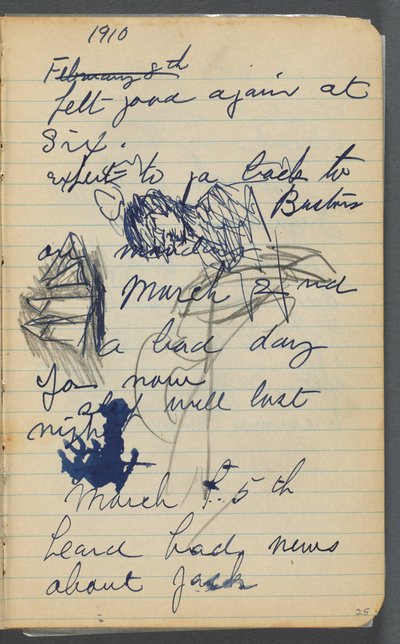 1910
February 8th
Felt good again at
six.
expect to go back to
Boston
on monday
March 2nd
a bad day
for now
well last
night
March 5th
heard bad news
about Jack
25